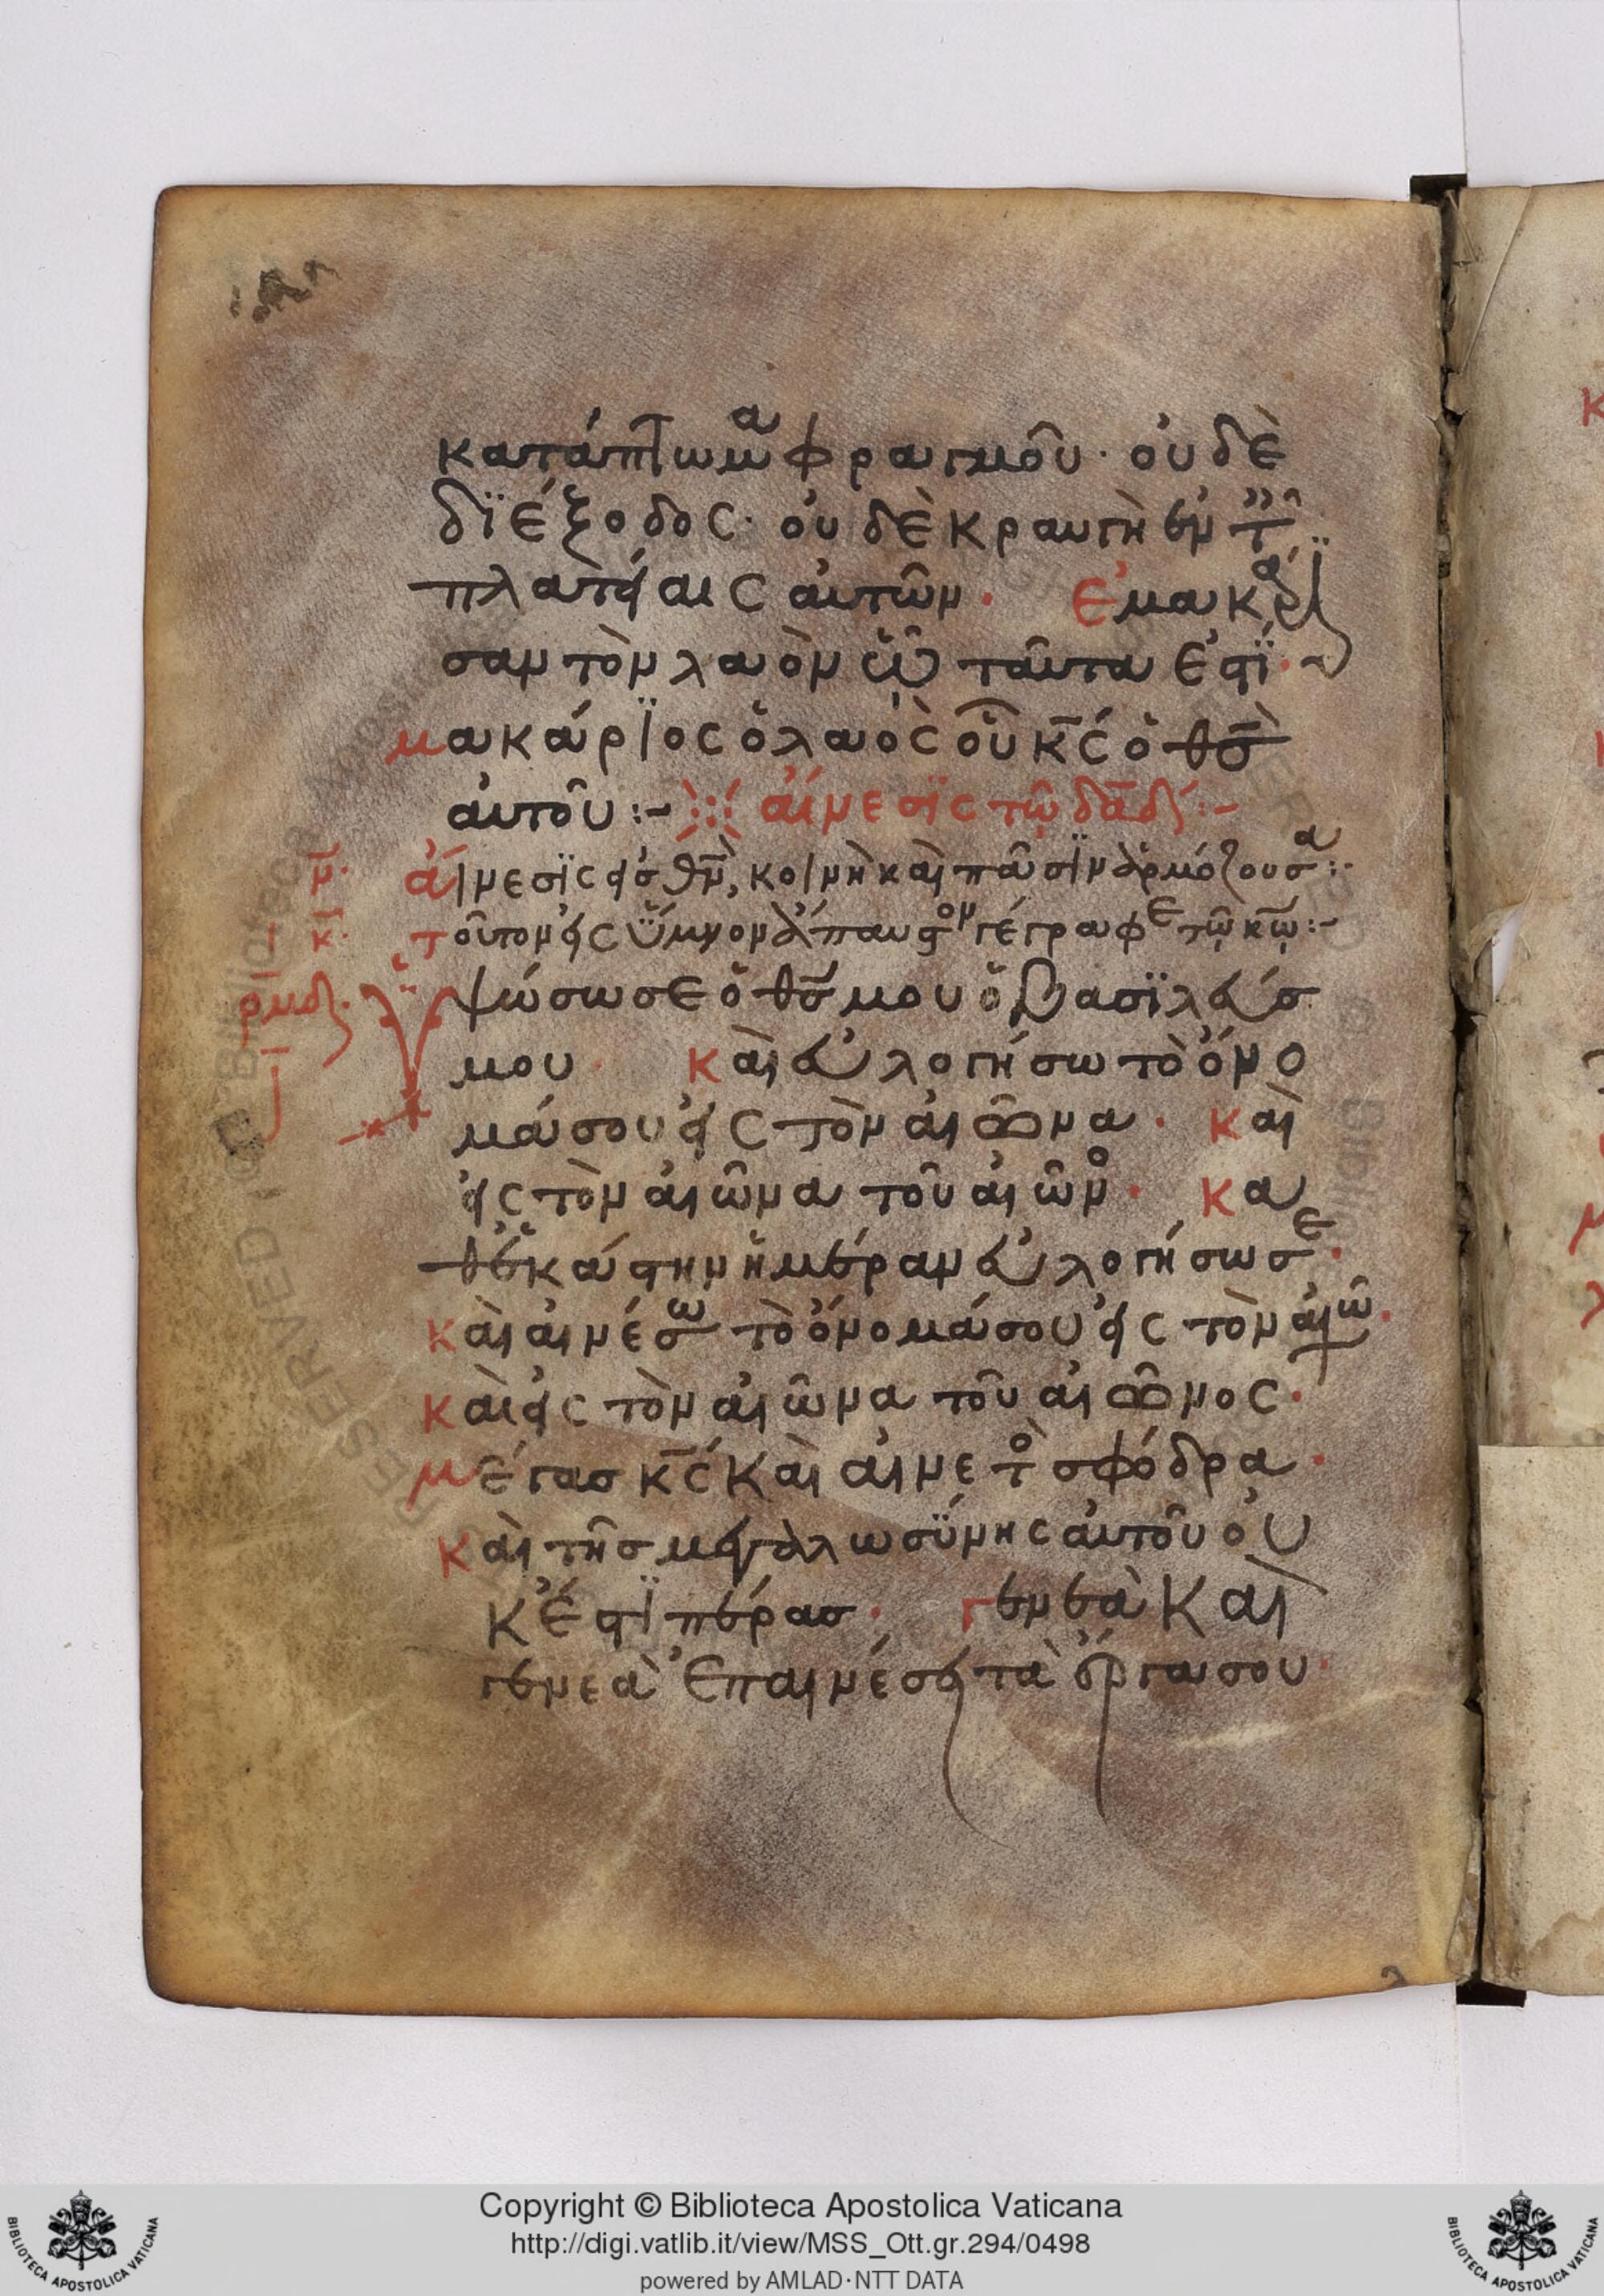 κατάπτωμα φραγμοῦ· οὐδὲ
διέξοδος· οὐδὲ κραυγὴ ἐν τ
πλατείαις αὐτῶν· Ἐμακάρι
σαν τὸν λαὸν ᾧ ταῦτα ἐστί·
μακάριος ὁ λαὸς οὗ κς ὁ θς
αὐτοῦ:~ αἴνεσις τῷ δαδ:~
ν· αἴνεσις εἰς θν, κοινὴ καὶ πᾶσιν ἁρμόζουσα:·
κ· τοῦτον εἰς ὕμνον ἅπαυστον γέγραφε τῷ κω:~
ρμδ· Ὑψώσω σε ὁ θς μου ὁ βασιλεύς
μου· Καὶ εὐλογήσω τὸ ὄνο
μά σου εἰς τὸν αἰῶνα· καὶ
εἰς τὸν αἰῶνα τοῦ αἰῶνο· Κα
θ ἑκάστην ἡμέραν εὐλογήσω σε·
καὶ αἰνέσω τὸ ὄνομά σου εἰς τὸν αἰῶ·
καὶ εἰς τὸν αἰῶνα τοῦ αἰῶνος·
μέγας κς καὶ αἰνετὸ σφόδρα·
καὶ τῆς μεγαλωσύνης αὐτοῦ οὐ
κ ἐστὶ πέρας· γενεὰ καὶ
γενεὰ ἐπαινέσει τὰ ἔργα σου·
Copyright © Biblioteca Apostolica Vaticana
http://digi.vatlib.it/view/MSS_Ott.gr.294/0498
powered by AMLAD·NTT DATA
BIBLIOTECA APOSTOLICA VATICANA
BIBLIOTECA APOSTOLICA VATICANA